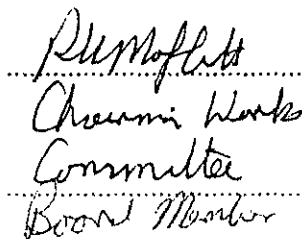 RHMoffitt
Chairman Works
Committee
Board Member